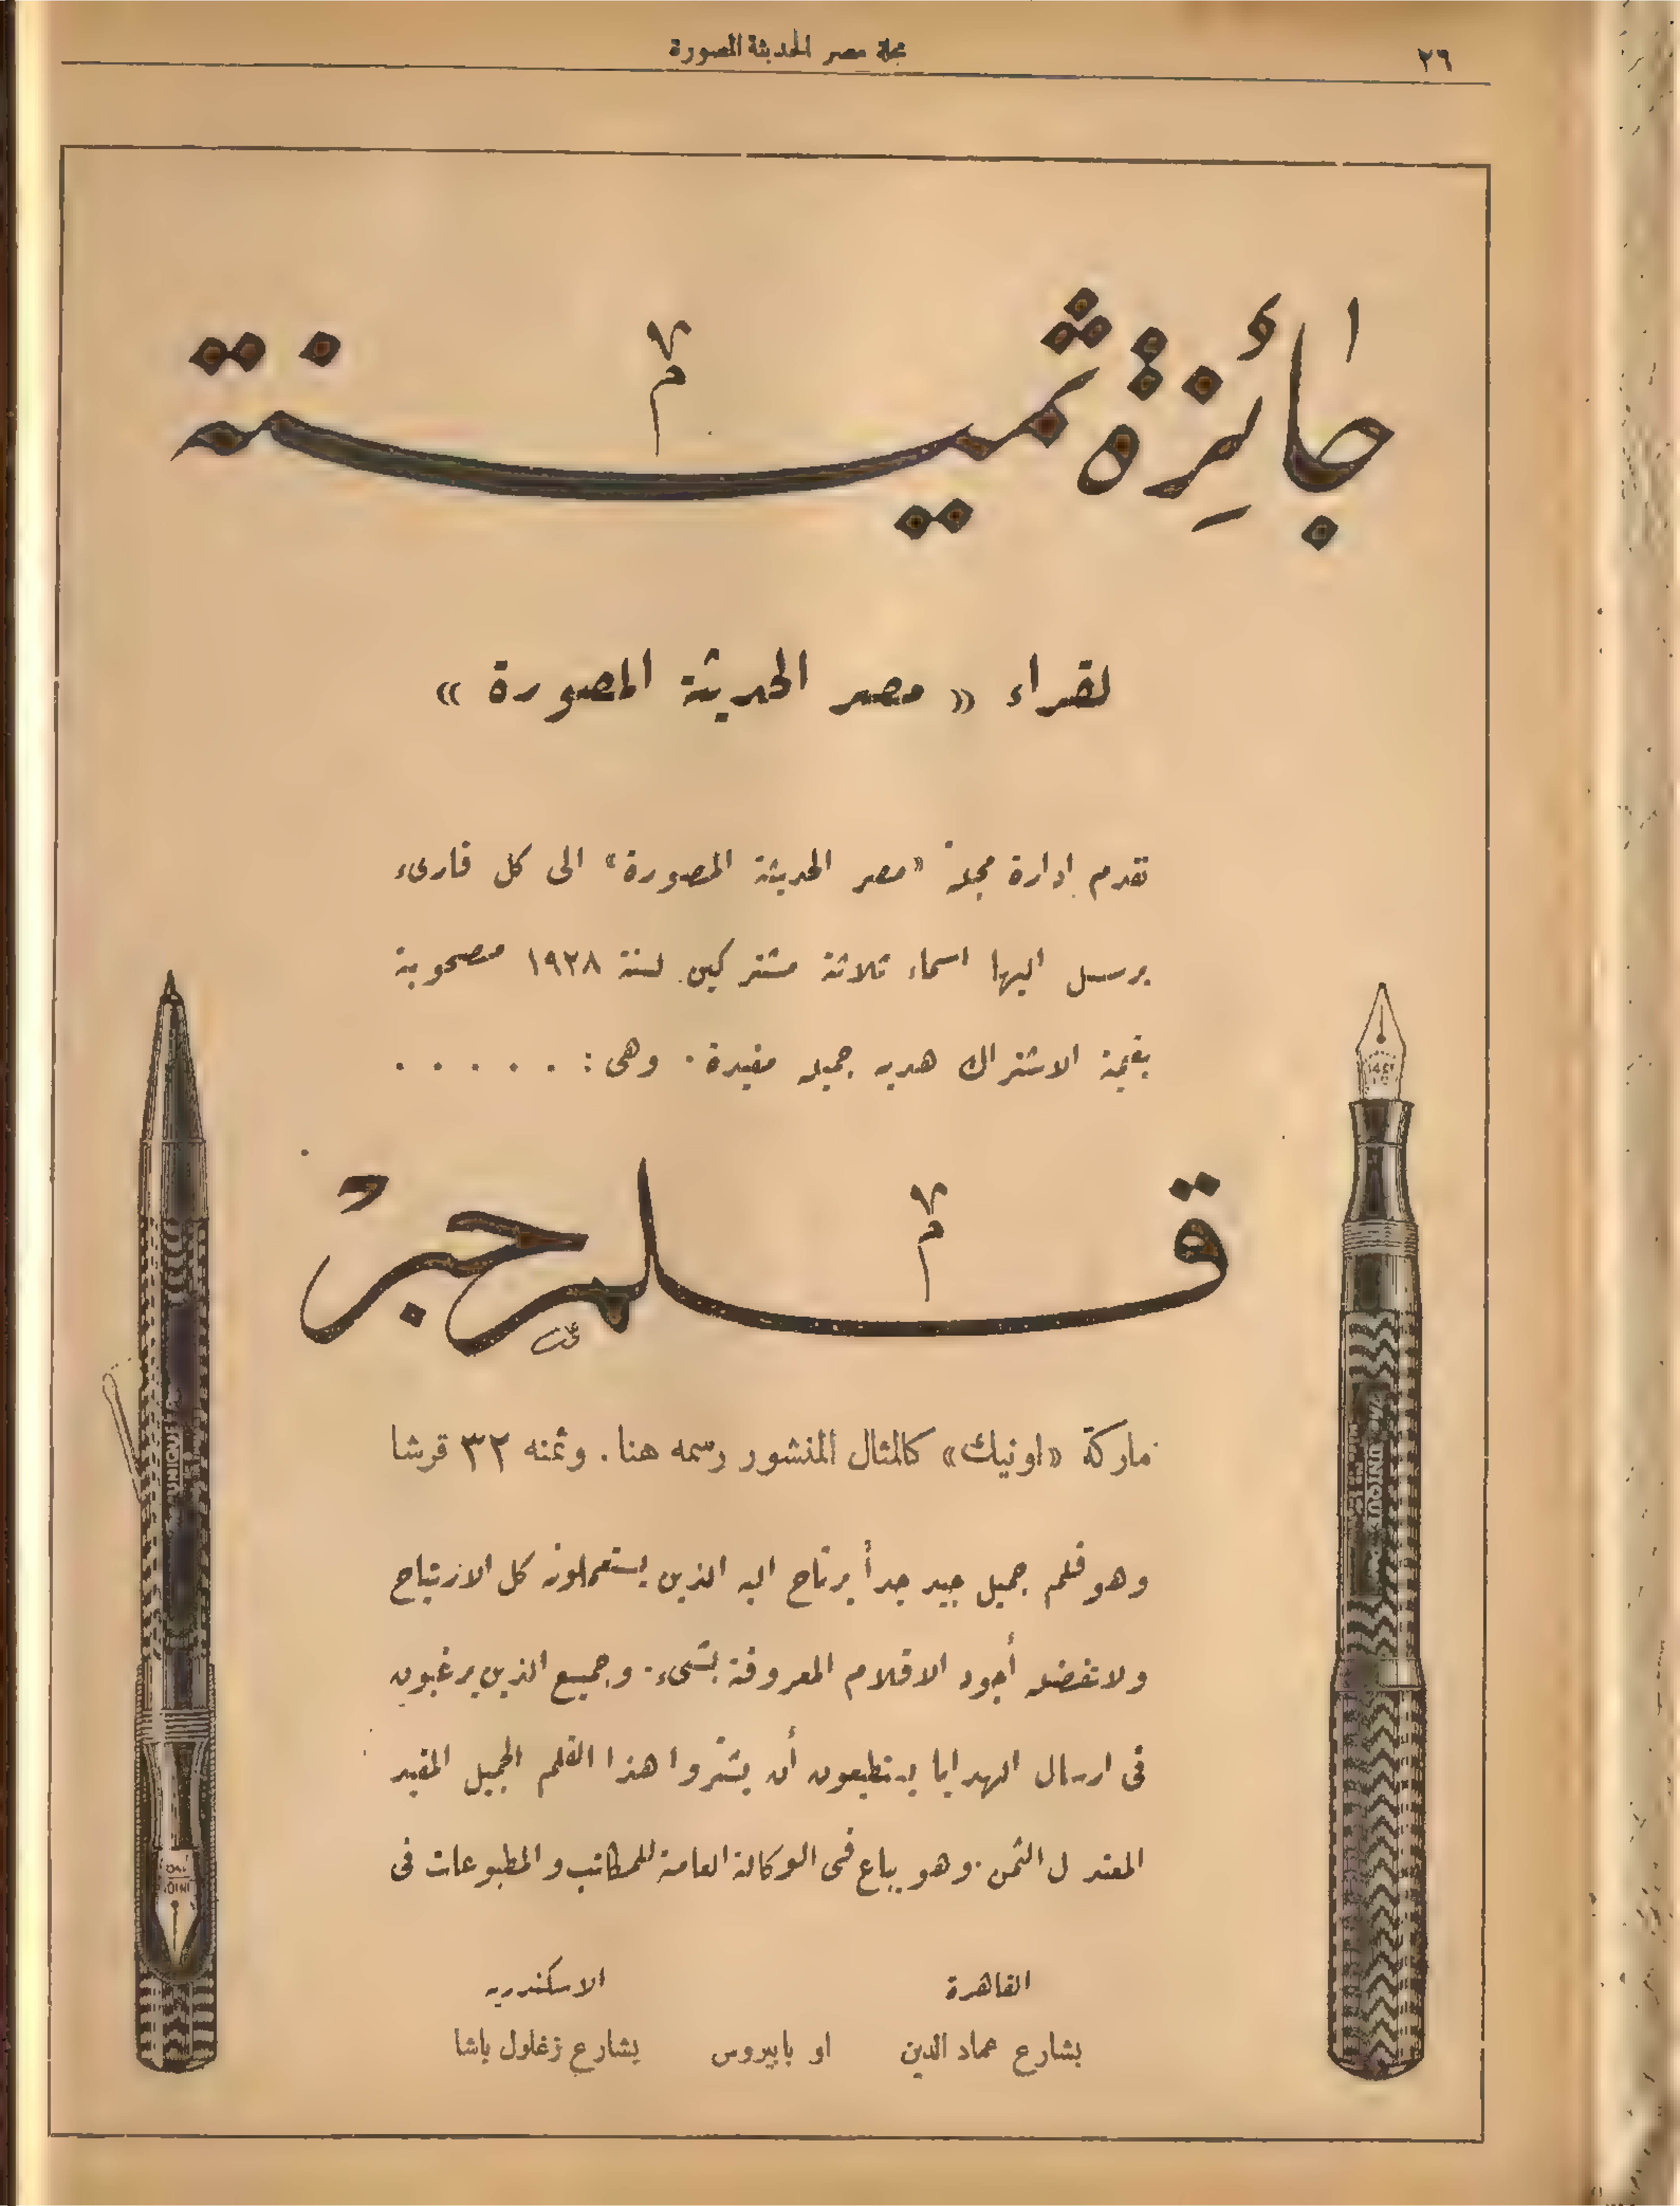 ٢٦
مجلة مصر الحديثة المصورة
جائزة ثمينة
لقراء « مصر الحديثة المصورة »
تقدم ادارة مجلة «مصر الحديثة المصورة» الى كل قارىء
يرسل اليها اسماء ثلاثة مشتركين لسنة ١٩٢٨ مصحوبة
بقيمة الاشتراك هدية جميلة مفيدة . وهى : . . . . .
قلم حبر
ماركة «اونيك» كالمثال المنشور رسمه هنا . وثمنه ٣٢ قرشا
وهو قلم جميل جيد جداً يرتاح اليه الذين يستعملونه كل الارتياح
ولا تفضله أجود الاقلام المعروفة بشىء . وجميع الذين يرغبون
فى ارسال الهدايا يستطيعون أن يشتروا هذا القلم الجميل المفيد
المعتدل الثمن . وهو يباع فى الوكالة العامة للمكاتب والمطبوعات فى
القاهرة الاسكندرية
بشارع عماد الدين او بابيروس بشارع زغلول باشا
UNIQUE
UNIQUE